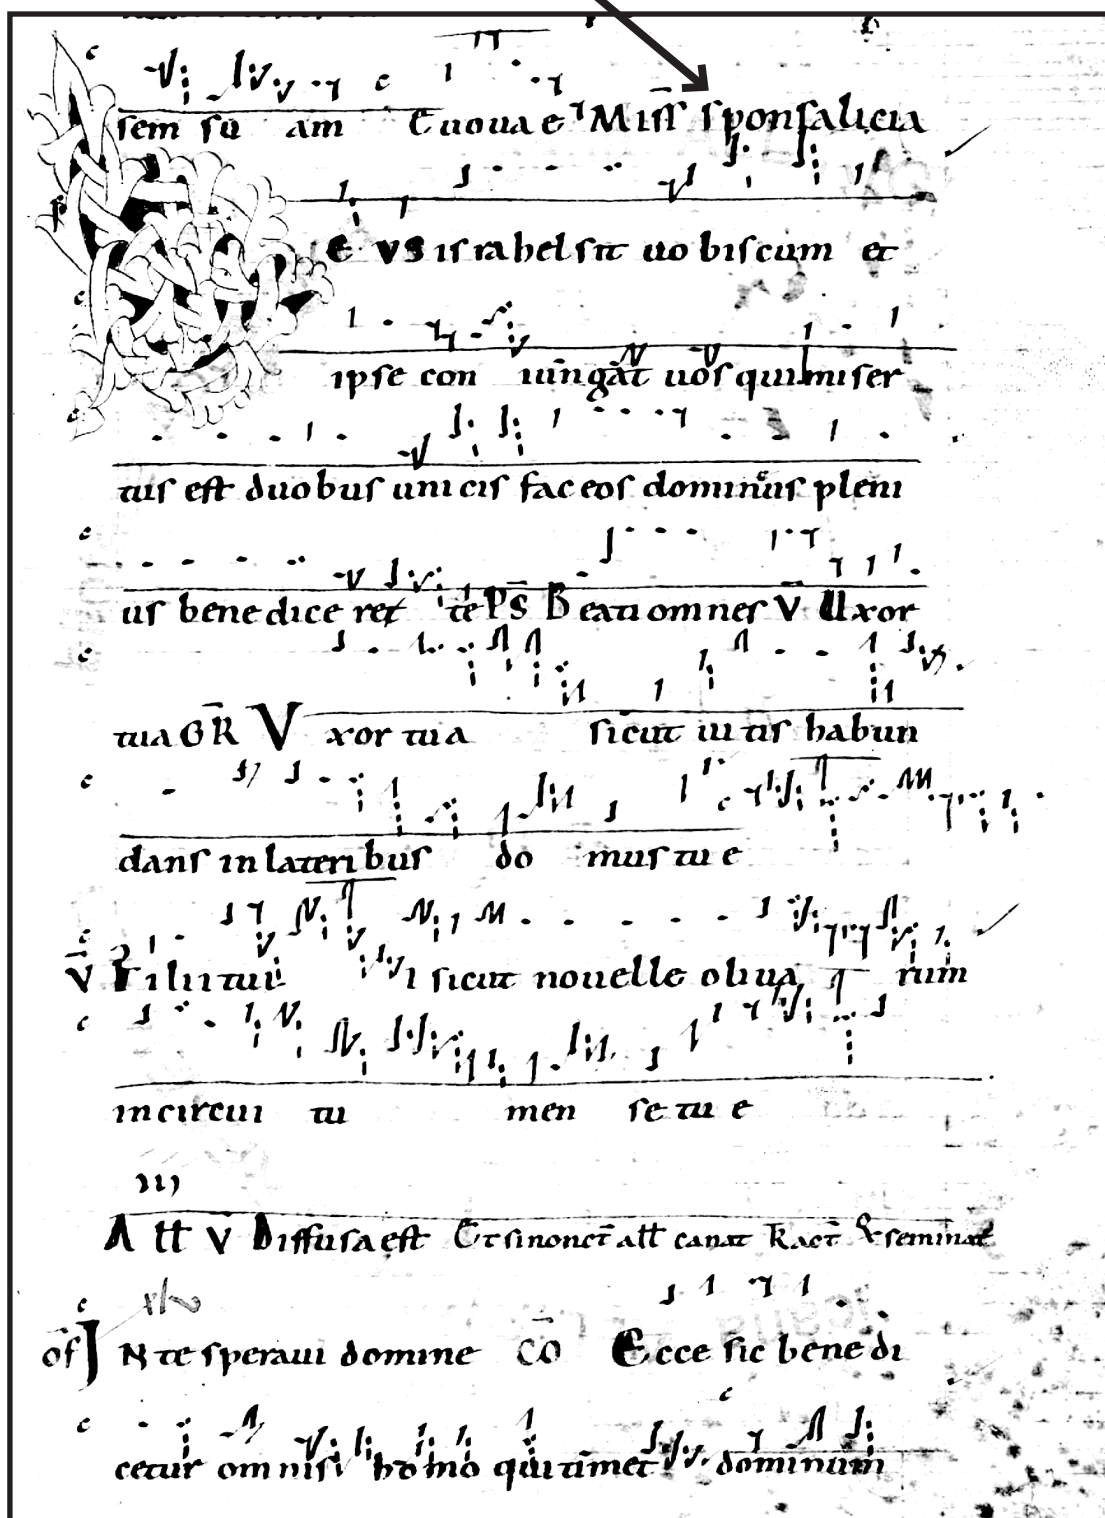 sem su am Euouae Miss sponsalicia
EVS israhel sit uo biscum et
ipse con iungat uos qui miser
tus est duobus unicis fac eos dominus pleni
us bene dice re te Ps Beati omnes V Uxor
tua GR Vxor tua sicut uitis habun
dans in lateribus do mus tu e
V Filii tui sicut nouelle oliua rum
in circui tu men se tu e
All V Diffusa est Et si non est all canat Tract
of IN te speraui domine CO Ecce sic bene di
cetur omnis homo qui timet dominum